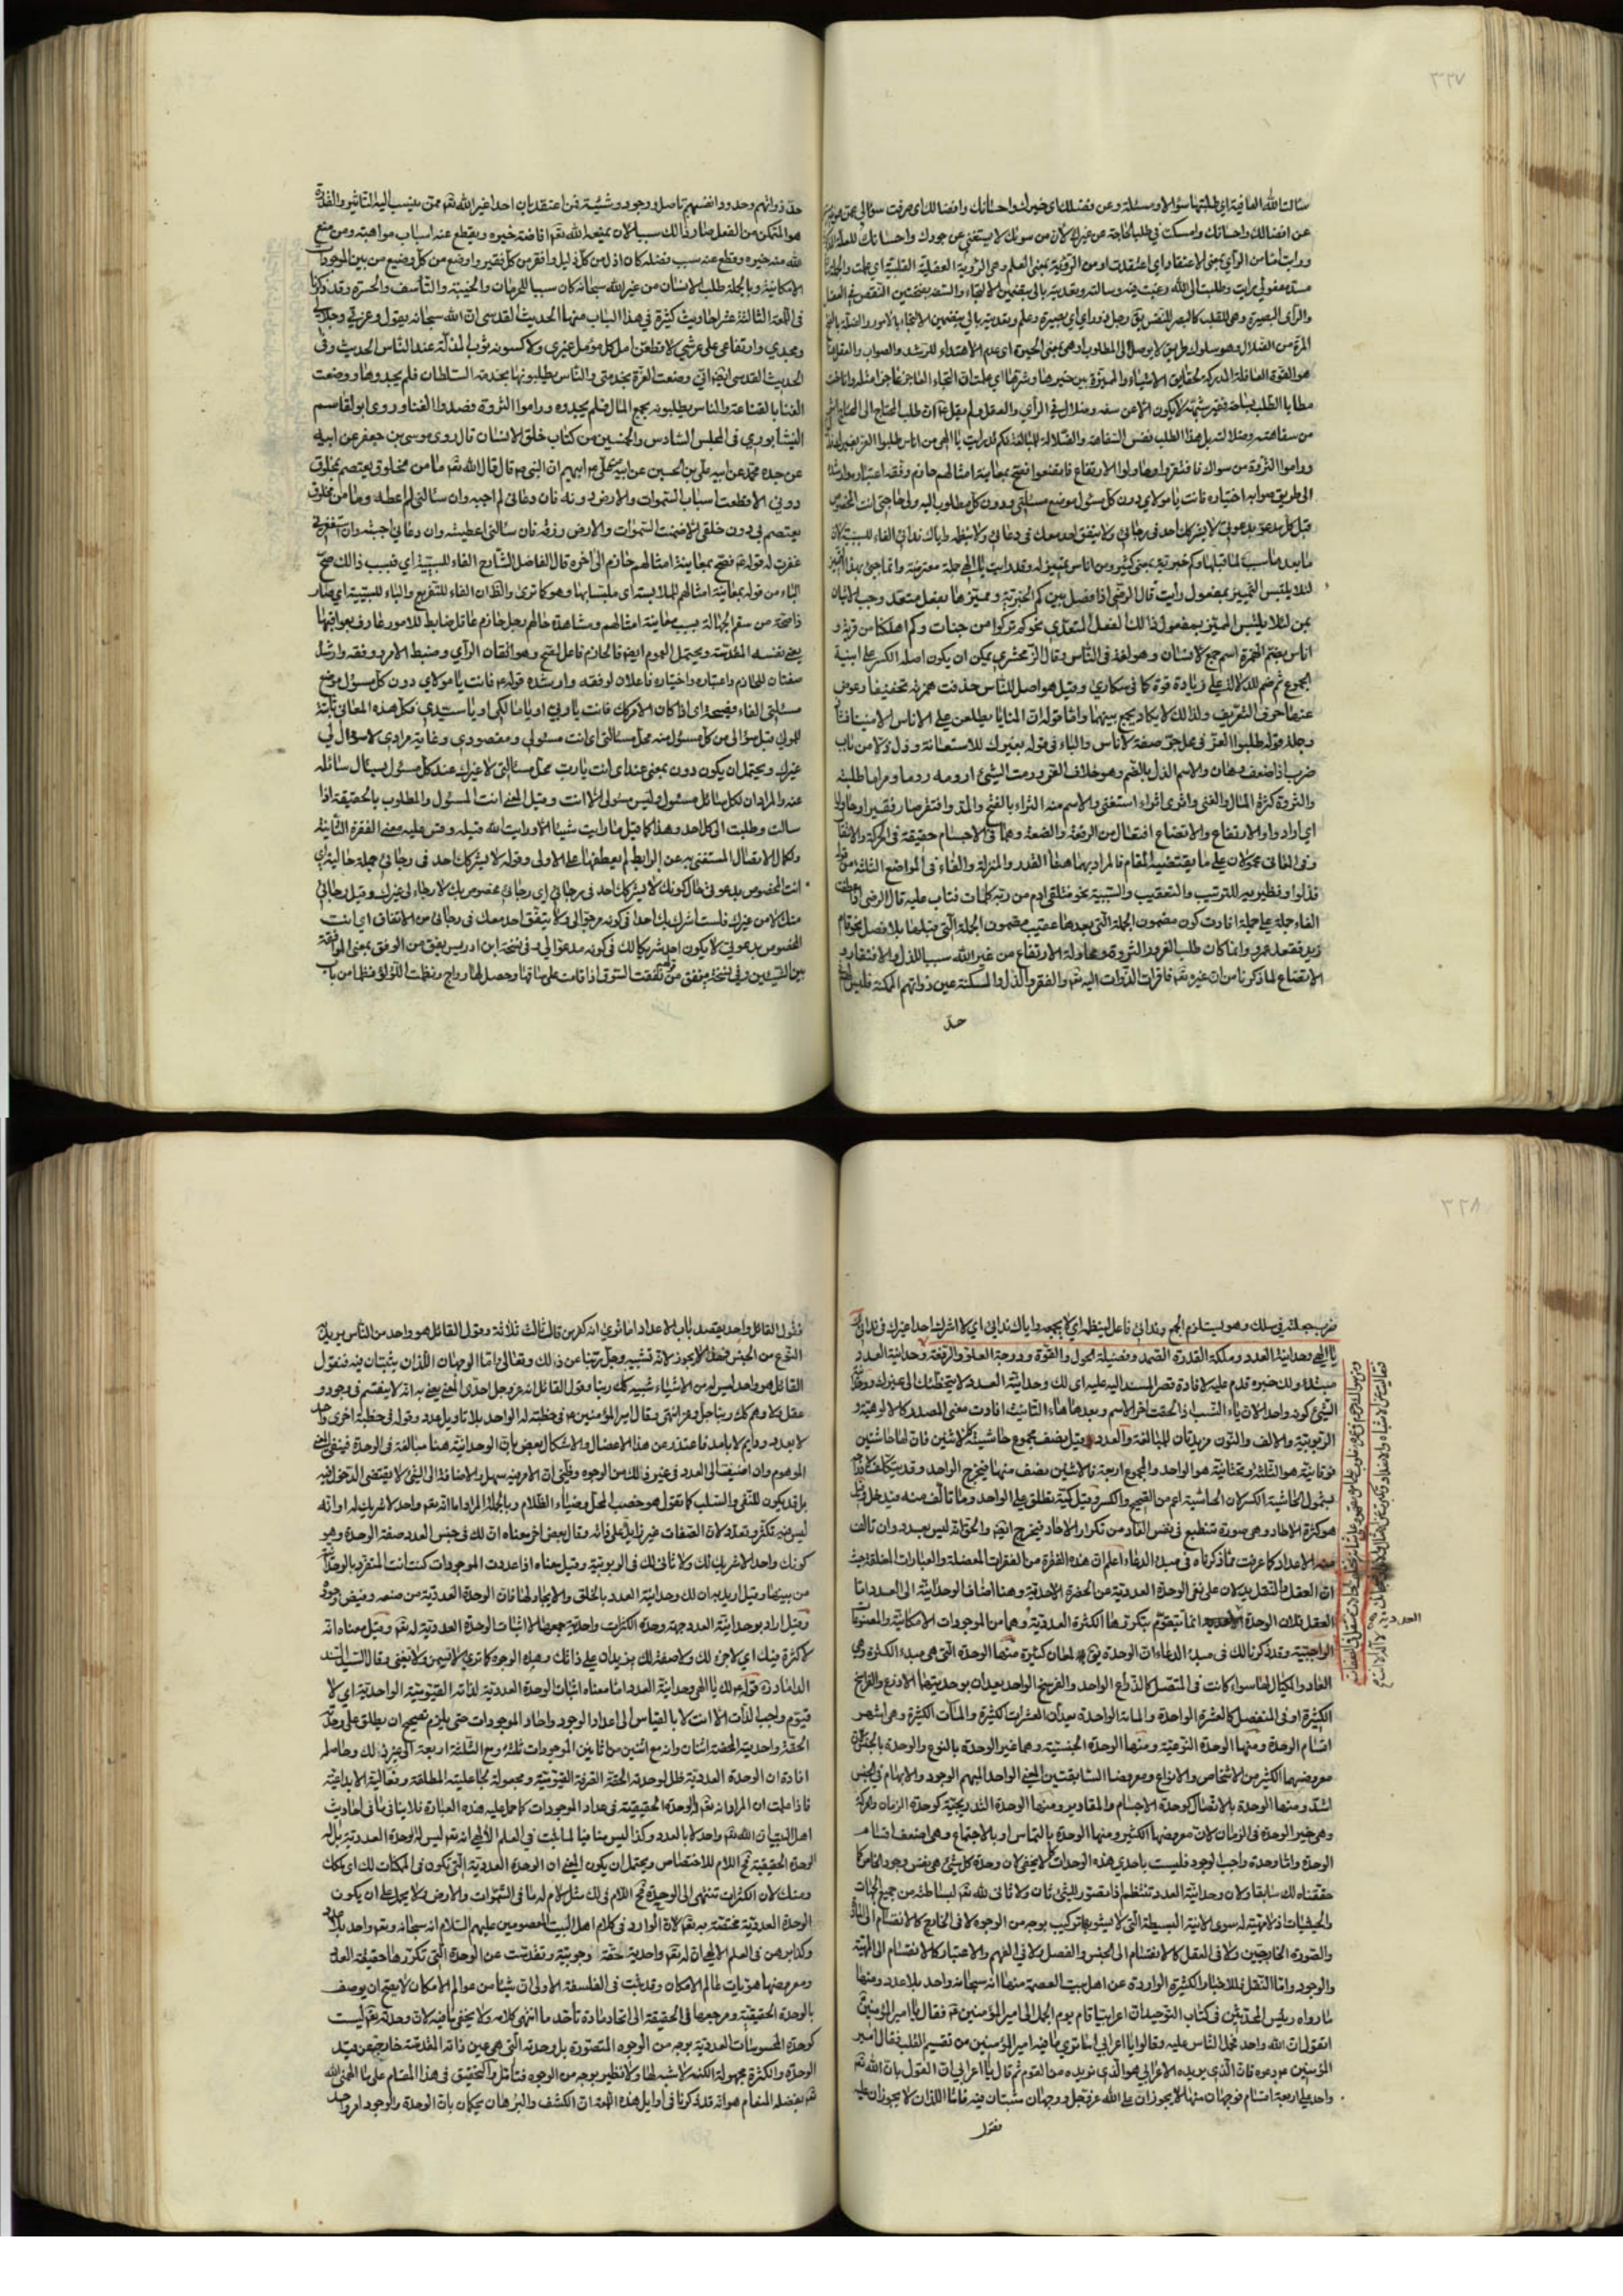 ٣٢٧
سئالت الله العافية اي طلبتها سؤالا ومسئلة وعن فضلك اي خيرك واحسانك وافضالك اي صرفت سؤالي
عن افضالك واحسانك وامسكت في طلب الحاجة عن غيرك لان من سواك لا يستغني عن جودك واحسانك
ورايت اما من الرأي بمعنى الاعتقاد اي اعتقدت او من الرؤية بمعنى العلم وهي الرؤية العقلية القلبية اي علمت
والرأي البصيرة وهي للقلب كالبصر للنفس يق رجل ذو رأي اي بصيرة وعلم
المرة من الضلال وهو سلوك طريق لا يوصل الى المطلوب او هي بمعنى الحيرة اي عدم الاهتداء للرشد والصواب والعقل
هو القوة العاقلة المدركة لحقايق الاشياء والمميزة بين خيرها وشرها
من سفاهته وضلالته بل هذا الطلب نفس السفاهة والضلالة للمبالغة فكم قد رايت يا الهي من اناس طلبوا العز بغيرك
وراموا الثروة من سواك فافتقروا وحاولوا الارتفاع فاتضعوا فصح بمعاينة امثالهم حازم وفقه اعتباره وارشده
الى طريق صوابه اختياره فانت يا مولاي دون كل مسئول موضع مسئلتي ودون كل مطلوب اليه ولي حاجتي انت المخصوص
قبل كل مدعو بدعوتي لا يشركك احد في رجائي ولا يتفق احد معك في دعائي ولا ينظمه واياك ندائي الفاء للسببية لان
لئلا يلتبس التمييز بمفعول رايت قال الرضي اذا فصل بين كم الخبرية ومميزها بفعل متعد وجب الاتيان
بمن لئلا يلتبس المميز بمفعول ذلك الفعل المتعدي نحو كم تركوا من جنات وكم اهلكنا من قرية و
اناس بضم الهمزة اسم جمع لانسان وهو لغة في الناس وقال الزمخشري يمكن ان يكون اصله الكسر على ابنية
الجموع ثم ضم للدلالة على زيادة قوة كما في سكارى وقيل هو اصل للناس حذفت همزته تخفيفا وعوض
عنها حرف التعريف ولذلك لا يكاد يجمع بينهما واما قوله ان المنايا يطلعن على الاناس الامنينا فشاذ
وجملة قوله طلبوا العز في محل جر صفة لاناس والباء في قوله بغيرك للاستعانة وذل ذلا من باب
ضرب اذا ضعف وهان والاسم الذل بالضم وهو خلاف العز ورمت الشيء ارومه روما ومراما طلبته
والثروة كثرة المال والغنى واثرى اثراء استغنى والاسم منه الثراء بالفتح والمد وافتقر صار فقيرا وحاول
اي اراد والارتفاع والاتضاع افتعال من الرفعة والضعة وهما في الاجسام حقيقة في الحركة والانتقال
وفي المعاني محمولان على ما يقتضيه المقام فالمراد بهما هنا القدر والمنزلة والفاء في المواضع الثلثة من قوله
فذلوا ونظيريه للترتيب والتعقيب والسببية نحو فتلقى ادم من ربه كلمات فتاب عليه قال الرضي اذا عطفت
الفاء جملة على جملة افادت كون مضمون الجملة التي بعدها عقيب مضمون الجملة التي قبلها بلا فصل نحو قام
زيد فقعد عمرو وانما كان طلب العز والثروة ومحاولة الارتفاع من غير الله سببا للذل والافتقار و
الاتضاع لما ذكرنا من ان غيره تع فاقرات الذوات اليه تع والفقر والذل والمسكنة عين ذواتهم الممكنة فليس
حد
حد ذواتهم وحدود انفسهم تاصل ووجود وشيئية فمن اعتقد بان احدا غير الله تع ممن ينسب اليه التاثير والقدرة
هو المتمكن من الفعل صار ذلك سببا لان يمنعه الله تع افاضة خيره ويقطع عنه اسباب مواهبه ومن منع
الله منه خيره وقطع عنه سبب فضله كان اذل من كل ذليل وافقر من كل فقير واوضع من كل وضيع من بين الموجودات
الامكانية وبالجملة طلب الانسان من غير الله سبحانه كان سببا للحرمان والخيبة والتاسف والحسرة وقد ذكرنا
في اللمعة الثالثة عشر احاديث كثيرة في هذا الباب منها الحديث القدسي ان الله سبحانه يقول وعزتي وجلالي
ومجدي وارتفاعي على عرشي لاقطعن امل كل مؤمل غيري ولاكسونه ثوب المذلة عند الناس الحديث وفي
الحديث القدسي ايضا اني وضعت العزة بخدمتي والناس يطلبونها بخدمة السلطان فلم يجدوها ووضعت
الغنا بالقناعة والناس يطلبونه بجمع المال فلم يجدوه وراموا الثروة فضدوا الغنا وروى ابو القاسم
النيشابوري في المجلس السادس والخمسين من كتاب خلق الانسان قال روى موسى بن جعفر عن ابيه
عن جده محمد عن ابيه علي بن الحسين عن ابيه عن علي عن النبي ص قال قال الله تع ما من مخلوق يعتصم بمخلوق
دوني الا قطعت اسباب السموات والارض دونه فان دعاني لم اجبه وان سئالني لم اعطه وما من مخلوق
يعتصم بي دون خلقي الا ضمنت السموات والارض رزقه فان سئالني اعطيته وان دعاني اجبته وان استغفرني
غفرت له قوله ع فصح بمعاينة امثالهم حازم الى اخره قال الفاضل الشارح الفاء للسببية اي فبسبب ذالك صح
الباء من قوله بمعاينة امثالهم للملابسة اي ملتبسا بها وهو كما ترى والظ ان الفاء للتفريع والباء للسببية اي صار
ذا صحة من سقم الجهالة بسبب معاينة امثالهم ومشاهدة حالهم رجل حازم عاقل ضابط للامور عارف بعواقبها
صفتان للحازم واعتباره واختياره فاعلان لوفقه وارشده قوله ع فانت يا مولاي دون كل مسؤل موضع
مسئلتي الفاء فصيحة اي اذا كان الامر كك فانت يا ربي او يا مالكي او يا سيدي فكل هذه المعاني ثابتة
للمولى قبل سؤالي من كل مسئول منه محل مسئالتي اي انت مسئولي ومقصودي وغاية مرادي لا سؤال لي
غيرك ويحتمل ان يكون دون بمعنى عند اي انت يا رب محل مسئالتي لا غيرك عند كل مسئول يسئال سائله
عنه والمراد ان لكل سائل مسئول وليس مسئولي الا انت وقيل المعنى انت المسئول والمطلوب بالحقيقة اذا
سالت وطلبت الى كل احد وهذا كما قيل ما رايت شيئا الا ورايت الله قبله وقس عليه معنى الفقرة الثانية
ولكمال الاتصال المستغنى به عن الرابط لم يعطفها على الاولى وقوله لا يشركك احد في رجائي جملة حالية اي
انت المخصوص بدعوتي حال كونك لا يشركك احد في رجائي اي رجائي مخصوص بك لا رجاء لي غيرك وقيل رجائي
منك لا من غيرك فلست اشرك بك احدا في كونه مرجوا لي ولا يتفق احد معك في رجائي من الاتفاق اي انت
المخصوص بدعوتي لا يكون احد شريكا لك في كونه مدعوا لي وفي نسخة ابن ادريس يفق من الوفق بمعنى الموافقة
بين الشيئين وفي نسخة ينفق من نفقت السوق اذا قامت على ساقها وحصل لها رواج ونظمت اللؤلؤ نظما من باب
٣٢٨
ضرب جعلته في سلك وهو يستلزم الجمع وندائي فاعل لينظمه اي لا يجمعه واياك ندائي اي لا اشرك احدا غيرك في ندائي
يا الهي وحدانية العدد وملكة القدرة الصمد وفضيلة الحول والقوة ودرجة العلو والرفعة وحدانية العدد
مبتدء ولك خبره قدم عليه لافادة قصر المسند اليه عليه اي لك وحدانية العدد لا يتخطاك الى غيرك
الشيء كونه واحدا لان ياء النسب اذا لحقت اخر الاسم وبعدها هاء التانيث افادت معنى المصدر كالالوهية و
الربوبية والالف والنون مزيدتان للمبالغة والعدد قيل نصف مجموع حاشيتيه كالاثنين فان لها حاشيتين
فوقانية هو الثلثة وتحتانية هو الواحد والمجموع اربعة فالاثنين نصف منها فيخرج الواحد وقد يتكلف
بشمول الحاشية الكسر لان الحاشية اعم من الصحيح والكسر وقيل كمية يطلق على الواحد وما تألف منه فيدخل وقيل
هو كثرة الاحاد وهي صورة تنطبع في نفس العاد من تكرار الاحاد فيخرج ايضا والحق انه ليس بعدد وان تالف
منه الاعداد كما عرفت مما ذكرناه في مبدء الدعاء اعلم ان هذه الفقرة من الفقرات المعضلة والعبارات المغلقة حيث
ان العقل والنقل يدلان على نفي الوحدة العددية عن الحضرة الاحدية وهنا اضاف الوحدانية الى العدد اما
العقل فلان الوحدة العددية انما يتقوم بتكررها الكثرة العددية وهما من الموجودات الامكانية
الواجبية وقد ذكرنا لك في مبدء الدعاء ان الوحدة يق على معان كثيرة منها الوحدة التي هي مبدء الكثرة وهي
العاد والمكيال لها سواء كانت في المتصل كالذراع الواحد والفرسخ الواحد يعدان بوحدتهما الاذرع والفراسخ
الكثيرة او في المنفصل كالعشرة الواحدة والمائة الواحدة يعدان العشرات الكثيرة والمآت الكثيرة وهي اشهر
اقسام الوحدة ومنها الوحدة النوعية ومنها الوحدة الجنسية وهما غير الوحدة بالنوع والوحدة بالجنس
معروضهما الكثير من الاشخاص والانواع ومعروضا السابقتين المعنى الواحد المبهم الوجود والابهام في الجنس
اشد ومنها الوحدة بالاتصال كوحدة الاجسام والمقادير ومنها الوحدة التدريجية كوحدة الزمان والحركة
وهي غير الوحدة في الزمان لان معروضها الكثير ومنها الوحدة بالتماس او بالاجتماع وهي اضعف اقسام
الوحدة واما وحدة واجب الوجود فليست باحدي هذه الوحدات كما لا يخفى لان وحدة كل شيء هي نفس وجوده الخاص كما
حققناه لك سابقا ولان وحدانية العدد تنتظم فيما يتصور للشيء ثان ولا ثاني لله تع لبساطته من جميع الجهات
والحيثيات اذ لا مهية له سوى الانية البسيطة التي لا يشوبها تركيب بوجه من الوجوه لا في الخارج كالانقسام الى المادة
والصورة الخارجيتين ولا في العقل كالانقسام الى الجنس والفصل ولا في الفهم والاعتبار كالانقسام الى المهية
والوجود واما النقل فللاخبار الكثيرة الواردة عن اهل بيت العصمة منها انه سبحانه واحد بلا عدد ومنها
ما رواه رئيس المحدثين في كتاب التوحيد ان اعرابيا قام يوم الجمل الى امير المؤمنين ع فقال يا امير المؤمنين
اتقول ان الله واحد فحمل الناس عليه وقالوا يا اعرابي اما ترى ما فيه امير المؤمنين من تقسيم القلب فقال امير
المؤمنين ع دعوه فان الذي يريده الاعرابي هو الذي نريده من القوم ثم قال يا اعرابي ان القول بان الله تع
واحد على اربعة اقسام فوجهان منها لا يجوزان على الله عز وجل ووجهان يثبتان فيه فاما اللذان لا يجوزان عليه
فقول
العددية
فقول القائل واحد يقصد باب الاعداد اما ترى انه كفر من قال ثالث ثلاثة وقول القائل هو واحد من الناس يريد
النوع من الجنس فهذا لا يجوز لانه تشبيه وجل ربنا عن ذلك وتعالى واما الوجهان اللذان يثبتان فيه فقول
القائل هو واحد ليس له من الاشياء شبيه كك ربنا وقول القائل انه عز وجل احدي المعنى يعني به انه لا ينقسم في وجود و
عقل ولا وهم كك ربنا جل وعز انتهى وقال امير المؤمنين ع في خطبته له الواحد بلا تاويل عدد وقوله في خطبة اخرى واحد
لا بعدد ودائم لا بامد فاعتذر عن هذا الاعضال والاشكال بعض بان الوحدانية هنا مبالغة في الوحدة
الموهوم وان اضيفت الى العدد في غير ذلك من الوجوه وقلت ان الامر فيه سهل والاضافة الى الشيء لا يقتضي الدخول فيه
بل قد يكون للنفي والسلب كما تقول هو خصب المحل وضياء الظلام وبالجملة المراد اما انه تع واحد لا شريك له او انه
ليس فيه تكثر وتعدد لان الصفات غير زايدة على ذاته وقال بعض اخر معناه ان لك في جنس العدد صفة الوحدة وهو
كونك واحدا لا شريك لك ولا ثاني لك في الربوبية وقيل معناه اذا عددت الموجودات كنت انت المتفرد بالوحدانية
من بينها وقيل اريد به ان لك وحدانية العدد بالخلق والايجاد لها فان الوحدة العددية من صنعه وفيض جوده
وقيل اراد بوحدانية العدد جهة وحدة الكثرات واحدية جمعها لا اثبات الوحدة العددية له تع وقيل معناه انه
لا كثرة فيك اي لا جزء لك ولا صفة لك يزيدان على ذاتك وهذه الوجوه كما ترى لا يسمن ولا يغني وقال السيد السند
الداماد ره قوله ع لك يا الهي وحدانية العدد اما معناه اثبات الوحدة العددية لذاته القيومية الواحدية اي لا
قيوم واجب الذات الا انت لا بالقياس الى اعداد الوجود واحاد الموجودات حتى يلزم تصحيح ان يطلق على وحدته
الحقة واحديته المحضة اثنان وانه مع اثنين من ثانيين الموجودات ثلثة ومع الثلثة اربعة الى غير ذلك وحاصله
افادة ان الوحدة العددية ظل لوحدته الحقة الصرفة القيومية ومجعولة لجاعليته المطلقة وفعاليته الابداعية
فاذا علمت ان المراد انه تع والوحدة الحقيقية في عداد الموجودات كما حمل عليه هذه العبارة فلا ينافي ما في احاديث
اهل البيت ان الله تع واحد لا بالعدد وكذا ليس منافيا لما يثبت في العلم الالهي انه تع ليس له الوحدة العددية بل له
الوحدة الحقيقية فح اللام للاختصاص ويحتمل ان يكون المعنى ان الوحدة العددية التي تكون في الممكنات لك اي ملكك
ومنك لان الكثرات تنتهي الى الوحدة فح اللام في لك مثل لام له ما في السموات والارض ولا يحمل على ان يكون
الوحدة العددية متحققة به تع لان الوارد في كلام اهل البيت المعصومين عليهم السلام انه سبحانه وتع واحد بلا عدد
وكذا برهن في العلم الالهي ان له تع واحدية حقة وجوبية وتقدست عن الوحدة التي تكررها حقيقة العدد
ومعروضها هويات عالم الامكان وقد ثبت في الفلسفة الاولى ان شيئا من عوالم الامكان لا يصح ان يوصف
بالوحدة الحقيقية ومرجعها في الحقيقة الى اتحاد ما ده تاحد ما انتهى كلامه ولا يخفى ما فيه لان وحدته تع ليست
كوحدة المحسوسات العددية بوجه من الوجوه المتصورة بل وحدته التي هي عين ذاته المقدسة خارجة عن قيد
الوحدة والكثرة مجهولة الكنه لا شبه لها ولا نظير بوجه من الوجوه فتأمل والتحقيق في هذا المقام على ما الهمني الله
تع بفضله المنعام هو انه قد ذكرنا في اوايل هذه اللمعة ان الكشف والبرهان يحكمان بان الوحدة والوجود امر واحد